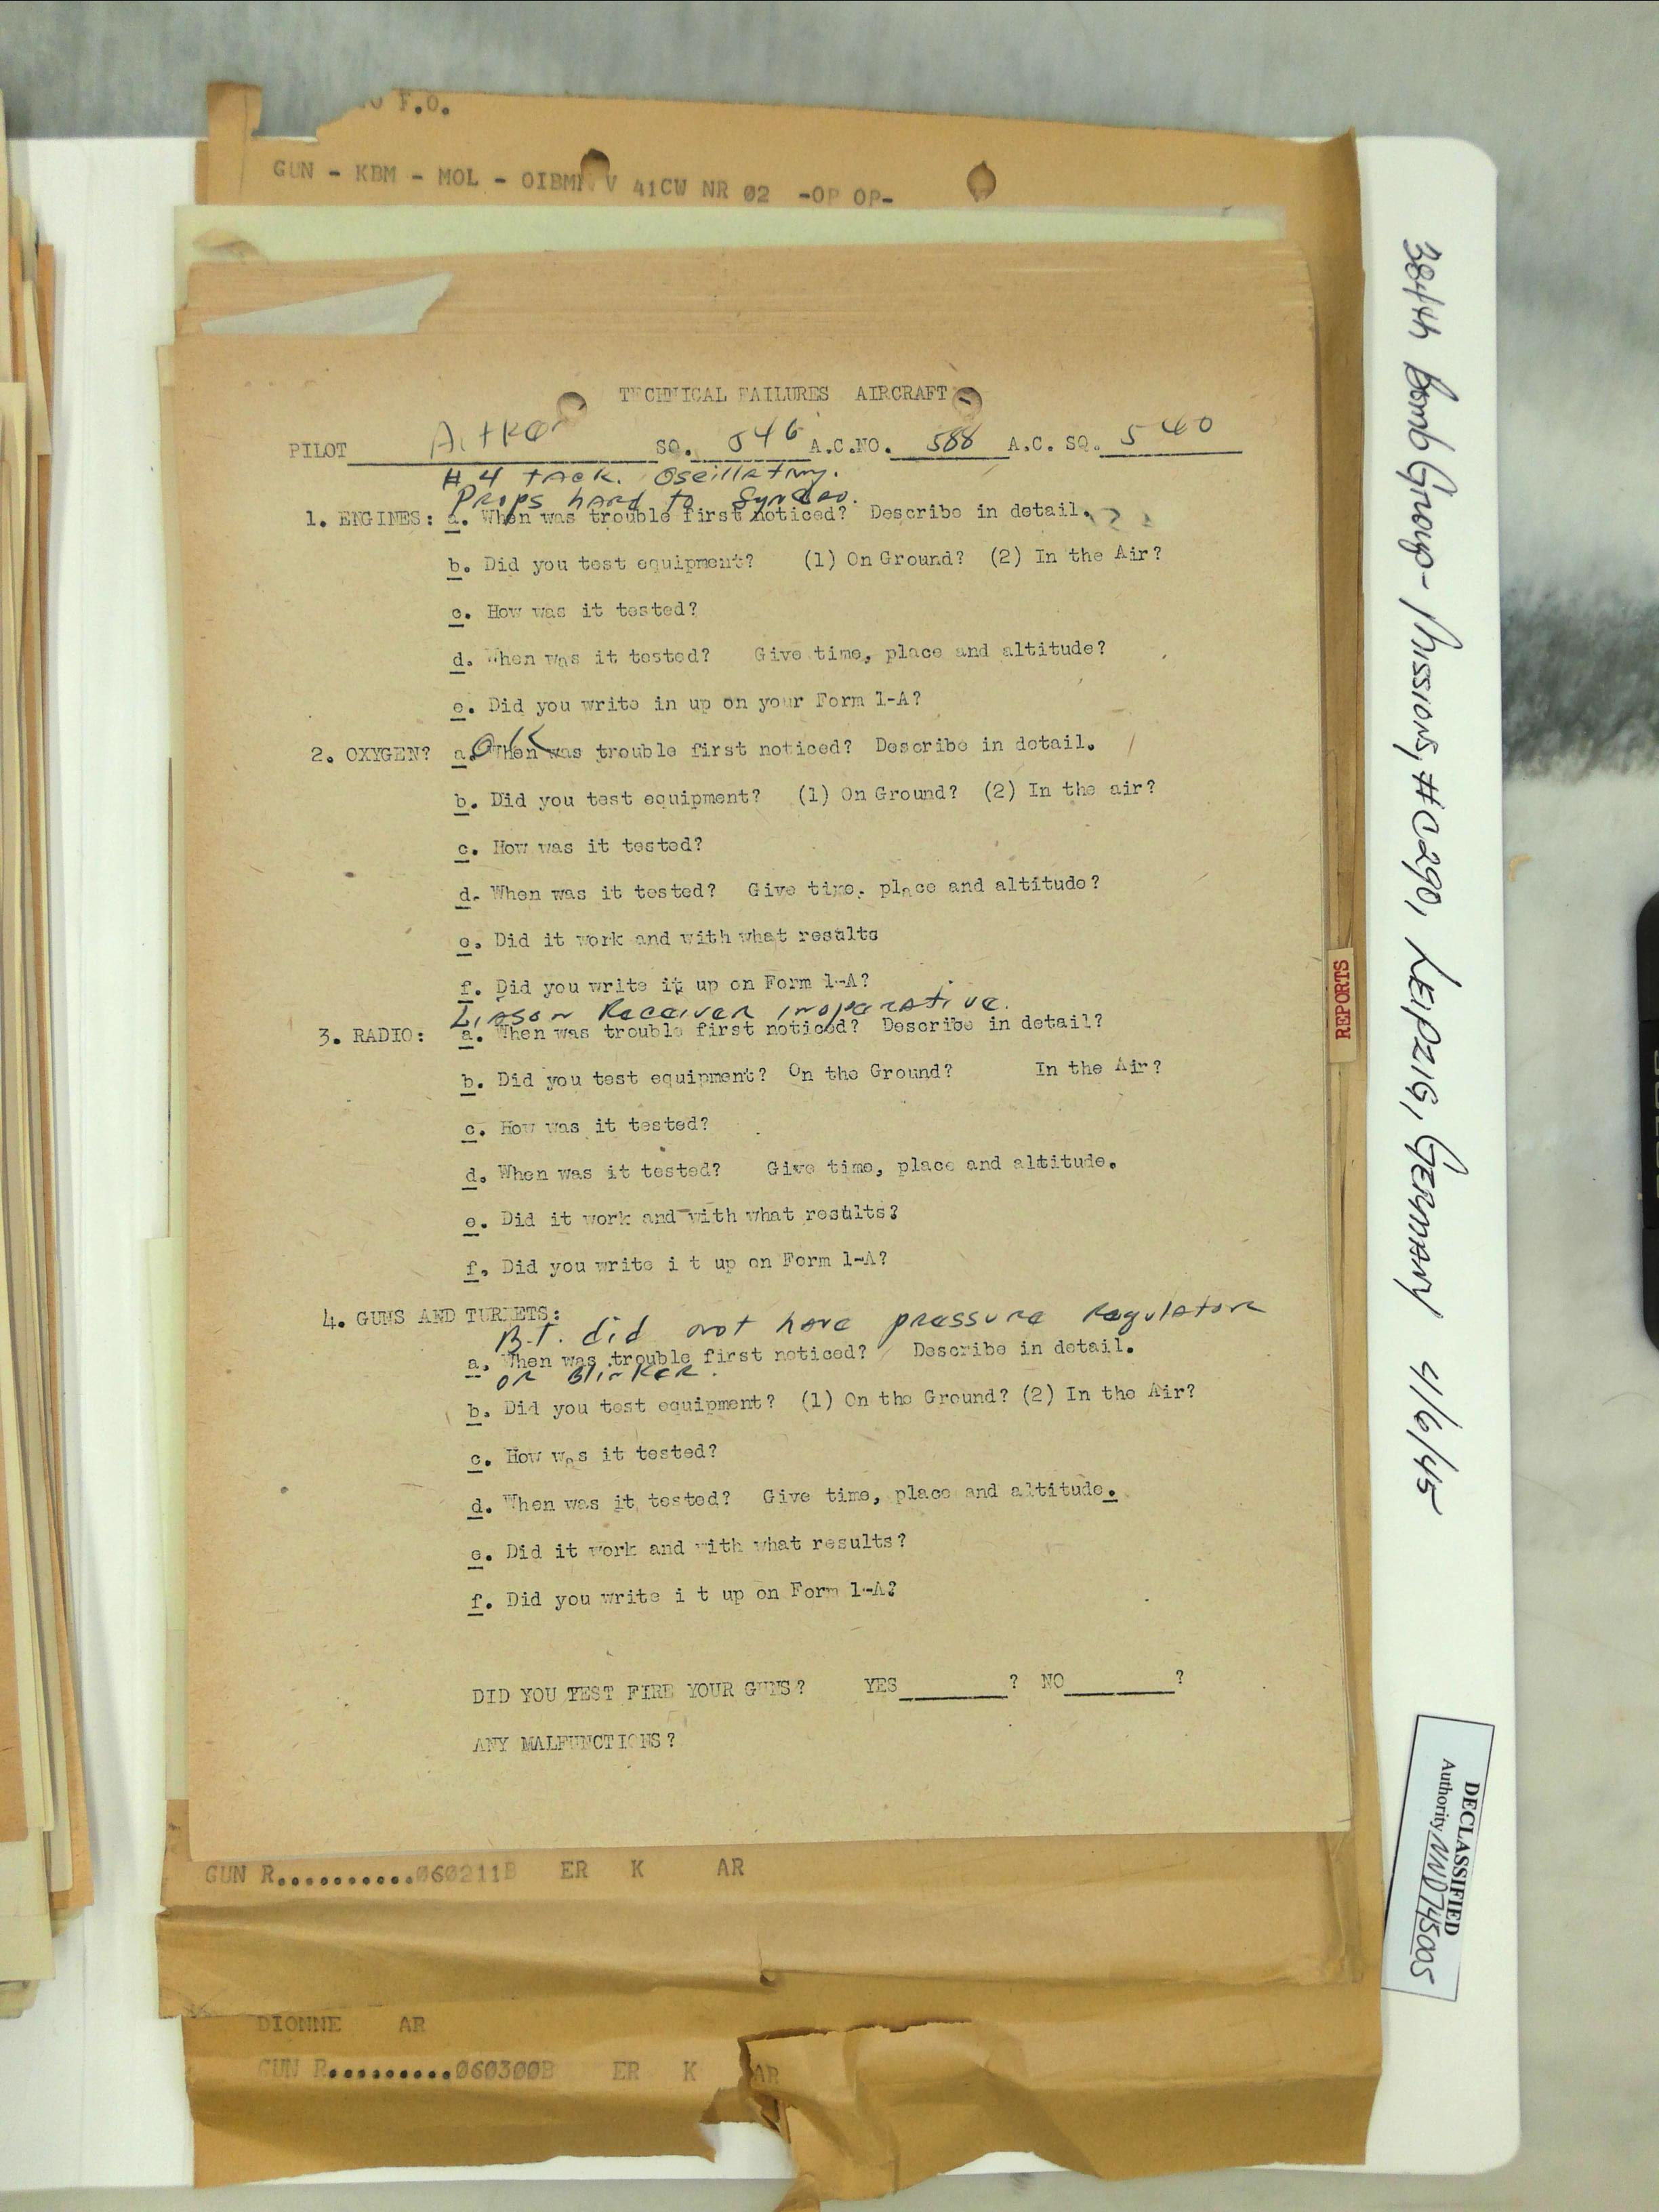 F.O.
GUN - KBM - MOL - OIBMN V 41CW NR 02 -OP OP-
TECHNICAL FAILURES AIRCRAFT
PILOT SQ. 546 A.C.NO. 588 A.C. SQ. 540
#4 tack. Oscillating.
Props hard to
1. ENGINES: a. When was trouble first noticed? Describe in detail.
b. Did you test equipment? (1) On Ground? (2) In the Air?
c. How was it tested?
d. When was it tested? Give time, place and altitude?
e. Did you write in up on your Form 1-A?
OK
2. OXYGEN? a. When was trouble first noticed? Describe in detail.
b. Did you test equipment? (1) On Ground? (2) In the air?
c. How was it tested?
d. When was it tested? Give time. place and altitude?
e. Did it work and with what results
f. Did you write it up on Form 1-A?
Liason Receiver inoperative.
3. RADIO: a. When was trouble first noticed? Describe in detail?
b. Did you test equipment? On the Ground? In the Air?
c. How was it tested?
d. When was it tested? Give time, place and altitude.
e. Did it work and with what results?
f. Did you write i t up on Form 1-A?
4. GUNS AND TURRETS:
B.T. did not have pressure regulator
a. When was trouble first noticed? Describe in detail.
or Blinker.
b. Did you test equipment? (1) On the Ground? (2) In the Air?
c. How was it tested?
d. When was it tested? Give time, place and altitude.
e. Did it work and with what results?
f. Did you write i t up on Form 1-A?
DID YOU TEST FIRE YOUR GUNS? YES ? NO ?
ANY MALFUNCTIONS?
GUN R..........060211B ER K AR
DIONNE AR
GUN R.........060300B ER K AR
REPORTS
384th Bomb Group - Missions, #C290, LEIPZIG, GERMANY 4/6/45
DECLASSIFIED
Authority NND745005